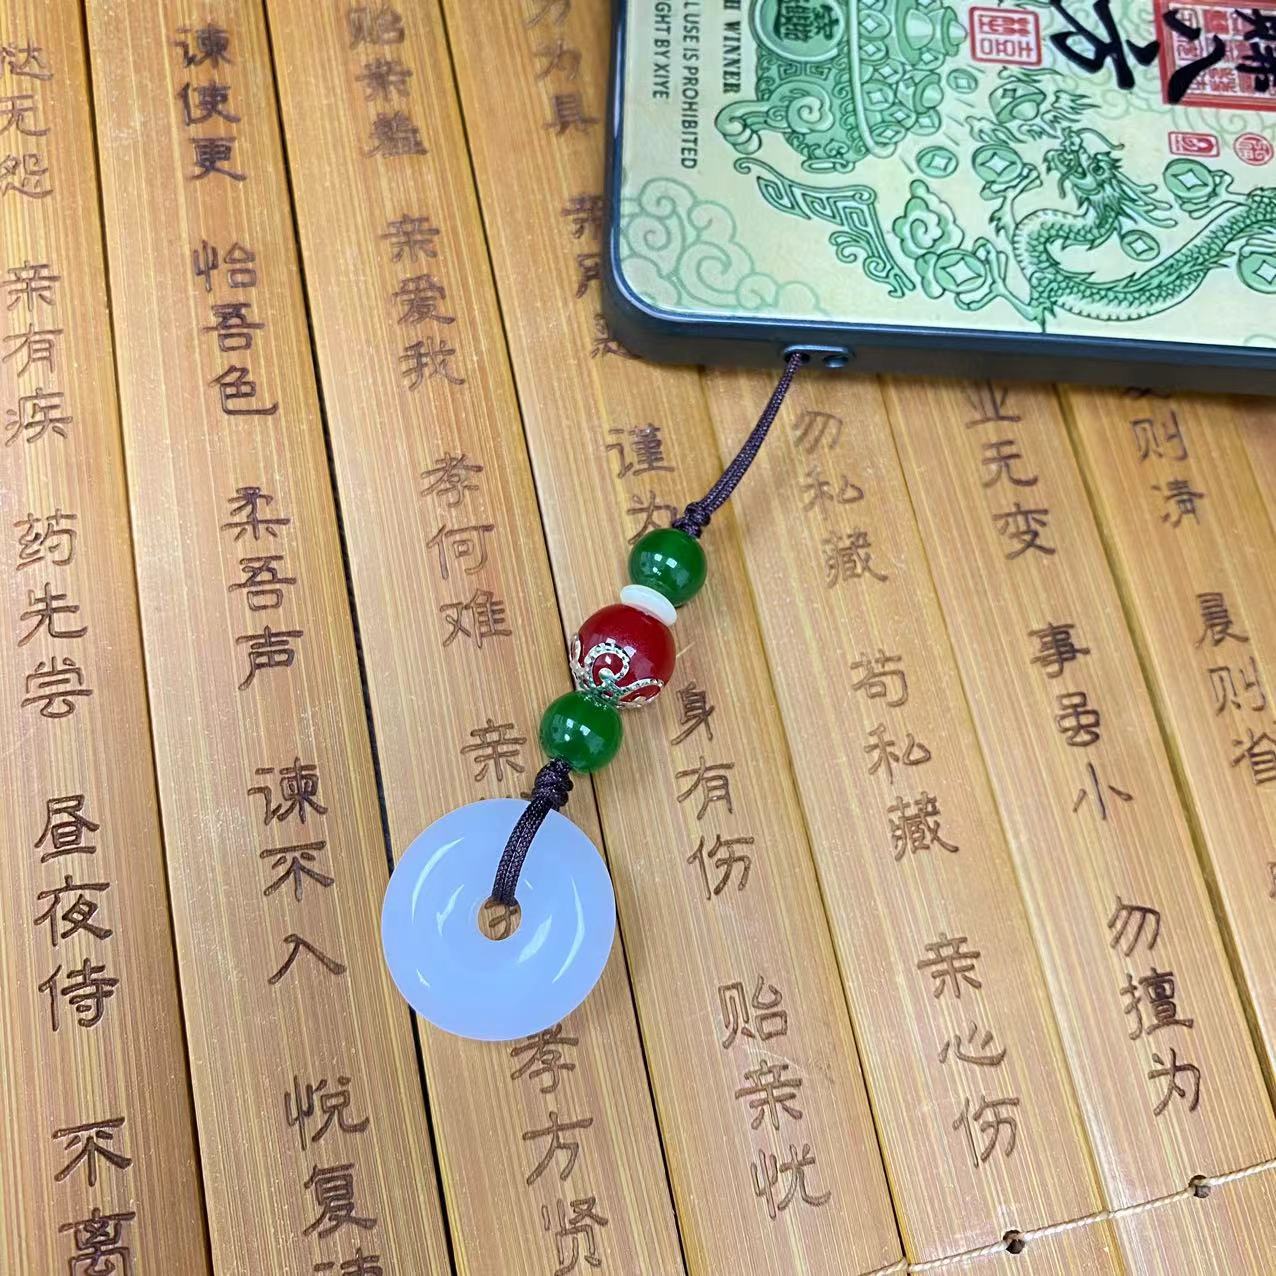 WINNER
USE IS PROHIBITED
BY XIYE
八方
则清 晨则省
业无变 事虽小 勿擅为
勿私藏 苟私藏 亲心伤
力为具 谨为 身有伤 贻亲忧
贻亲羞 亲爱我 孝何难 亲 孝方贤
谏使更 怡吾色 柔吾声 谏不入 悦复谏
挞无怨 亲有疾 药先尝 昼夜侍 不离